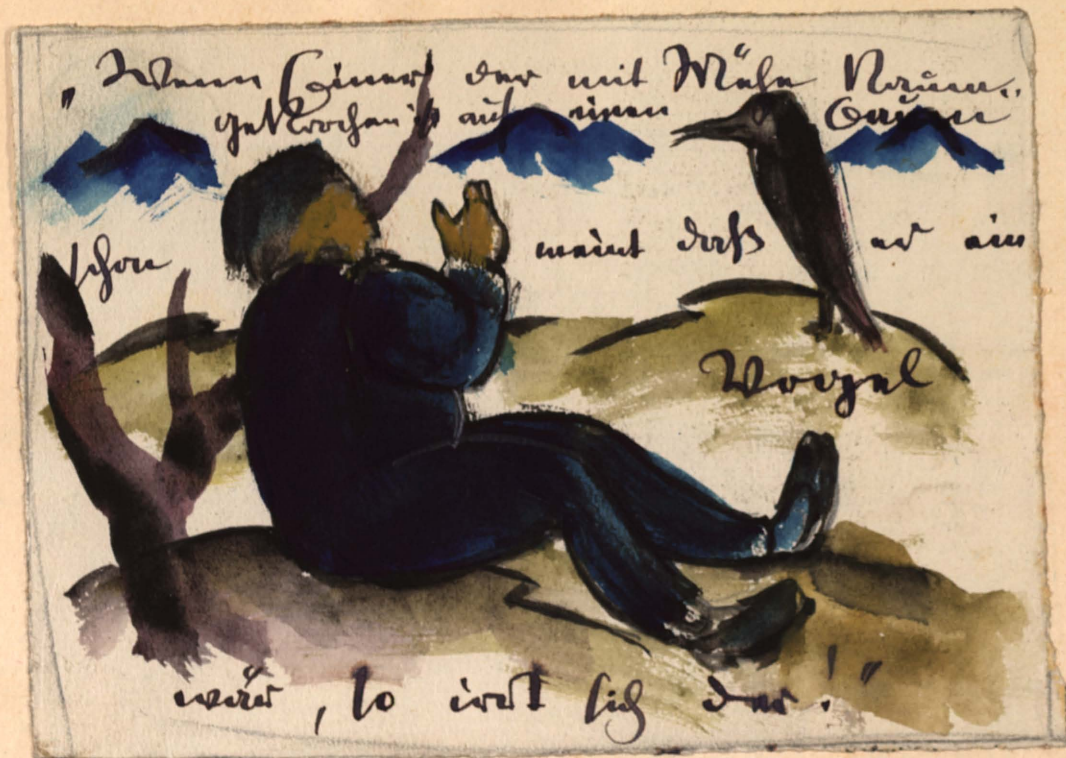 „Wenn Einer der mit Mühe Kaum
gekrochen ist auf einen Baum
schon meint daß er ein
Vogel
wär, so irrt sich der!"